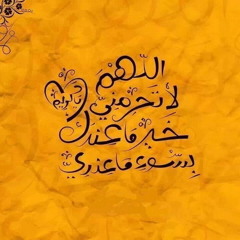 اللهم
لا تحرمني
خير ما عندك
بسوء ما عندي